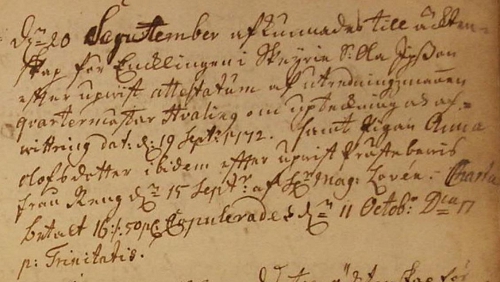 dn 20 September afkunnades till ächten-
skap för Encklingen i Skeyrie Silla Jpsson
efter upwist attestatum af utredningzmannen
Quartermästar Hvaling om upteckning och af-
wittring dat: d. 19 Sept: 1772. samt Pigan Anna
olofsdotter ibidem efter upwist Prästebewis
från Reng dn 15 Septr af Hr Mag: Lovén. Charta
betalt 16 s. 50 pC. Copulerades dn 11 Octobr Dca 17
p: Trinitatis.